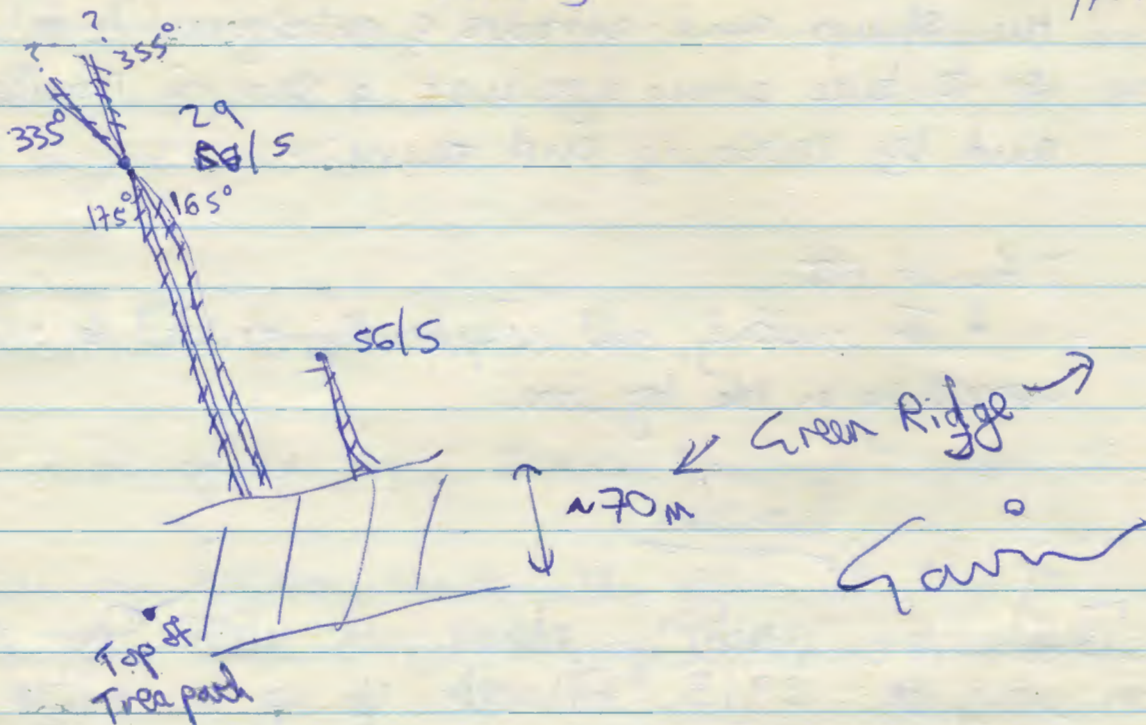 ? ?
355°
335°
29
56/5
175° 165°
56/5
← Green Ridge →
~70m
Gavin
Top of
Treepath